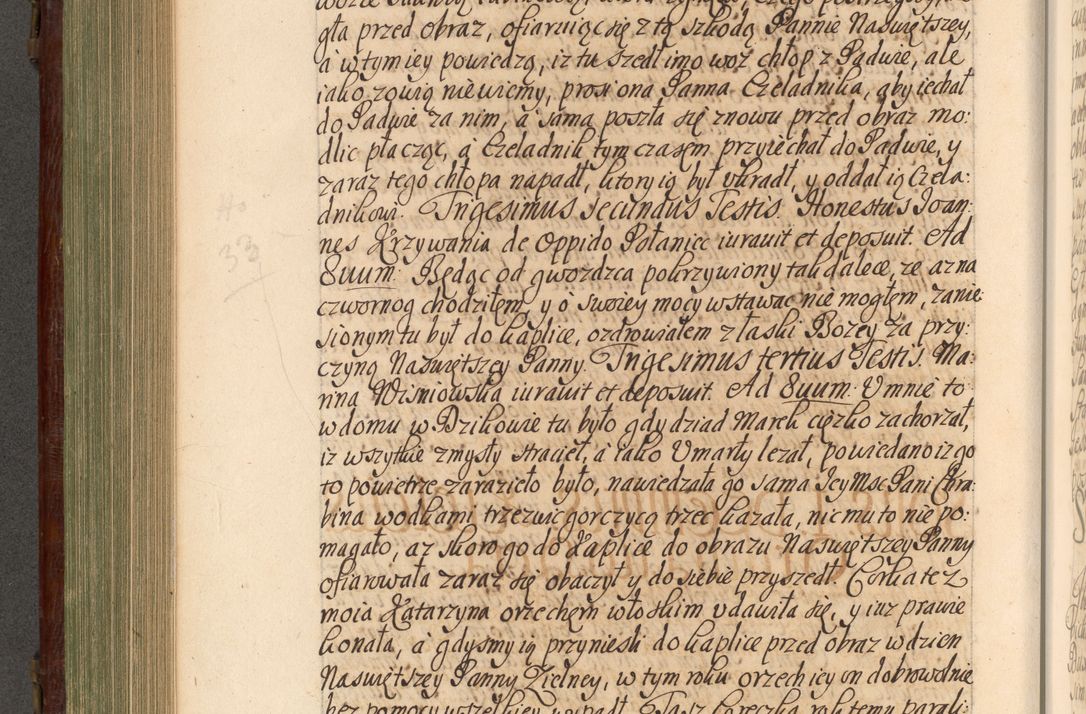 gła przed obraz, ofiaruiąc się z tą szkodą Pannie Naswiętszey,
a wtym iey powiedzą, iz tu szedł imo woz chłop z Padwie, ale
iako zowią nie wiemy, prosi ona Panna Czeladnika, aby iechał
do Padwie za nim, a sama poszła się znowu przed obraz mo:
dlic płacząc, a Czeladnik tym czasem przyiechał do Padwie, y
zaraz tego chłopa napadł, ktory ią był ukradł, y oddał ią Czela:
dnikowi. Trigesimus secundus Testis. Honestus Joan:
nes Krzywania de Oppido Połaniec iurauit et deposuit. Ad
8uum: Będąc od gwozdzca pokrzywiony tak dalece, ze az na
czwornog chodziłem, y o swoiey mocy wstawac nie mogłem, zanie:
sionym tu był do kaplice, ozdrowiałem z łaski Bozey za przy:
czyną Naswiętszey Panny. Trigesimus tertius Testis. Ma:
rina Wisniowska iurauit et deposuit. Ad 8uum: U mnie to
w domu w Dzikowie tu było gdy dziad Marek cięzko zachorzał,
iz wszytkie zmysły stracieł, a iako Umarły lezał, powiedano iz go
to powietrze zarazieło było, nawiedzała go sama Jey Msc Pani Chra:
bina wodkami trzezwic gorczycą trzec kazała, nic mu to nie po:
magało, az skoro go do Kaplice do obrazu Naswiętszey Panny
ofiarowała zaraz się obaczył y do siebie przyszedł. Corka tez
moia Katarzyna orzechem włoskim udawiła się, y iuz prawie
konała, a gdysmy ią przyniesli do kaplice przed obraz w dzien
Naswiętszey Panny Zielney, w tym roku orzech iey on dobrowolnie
bez pomocy wszelkiey wypadł. Tasz Coreczka roku temu parali:
33